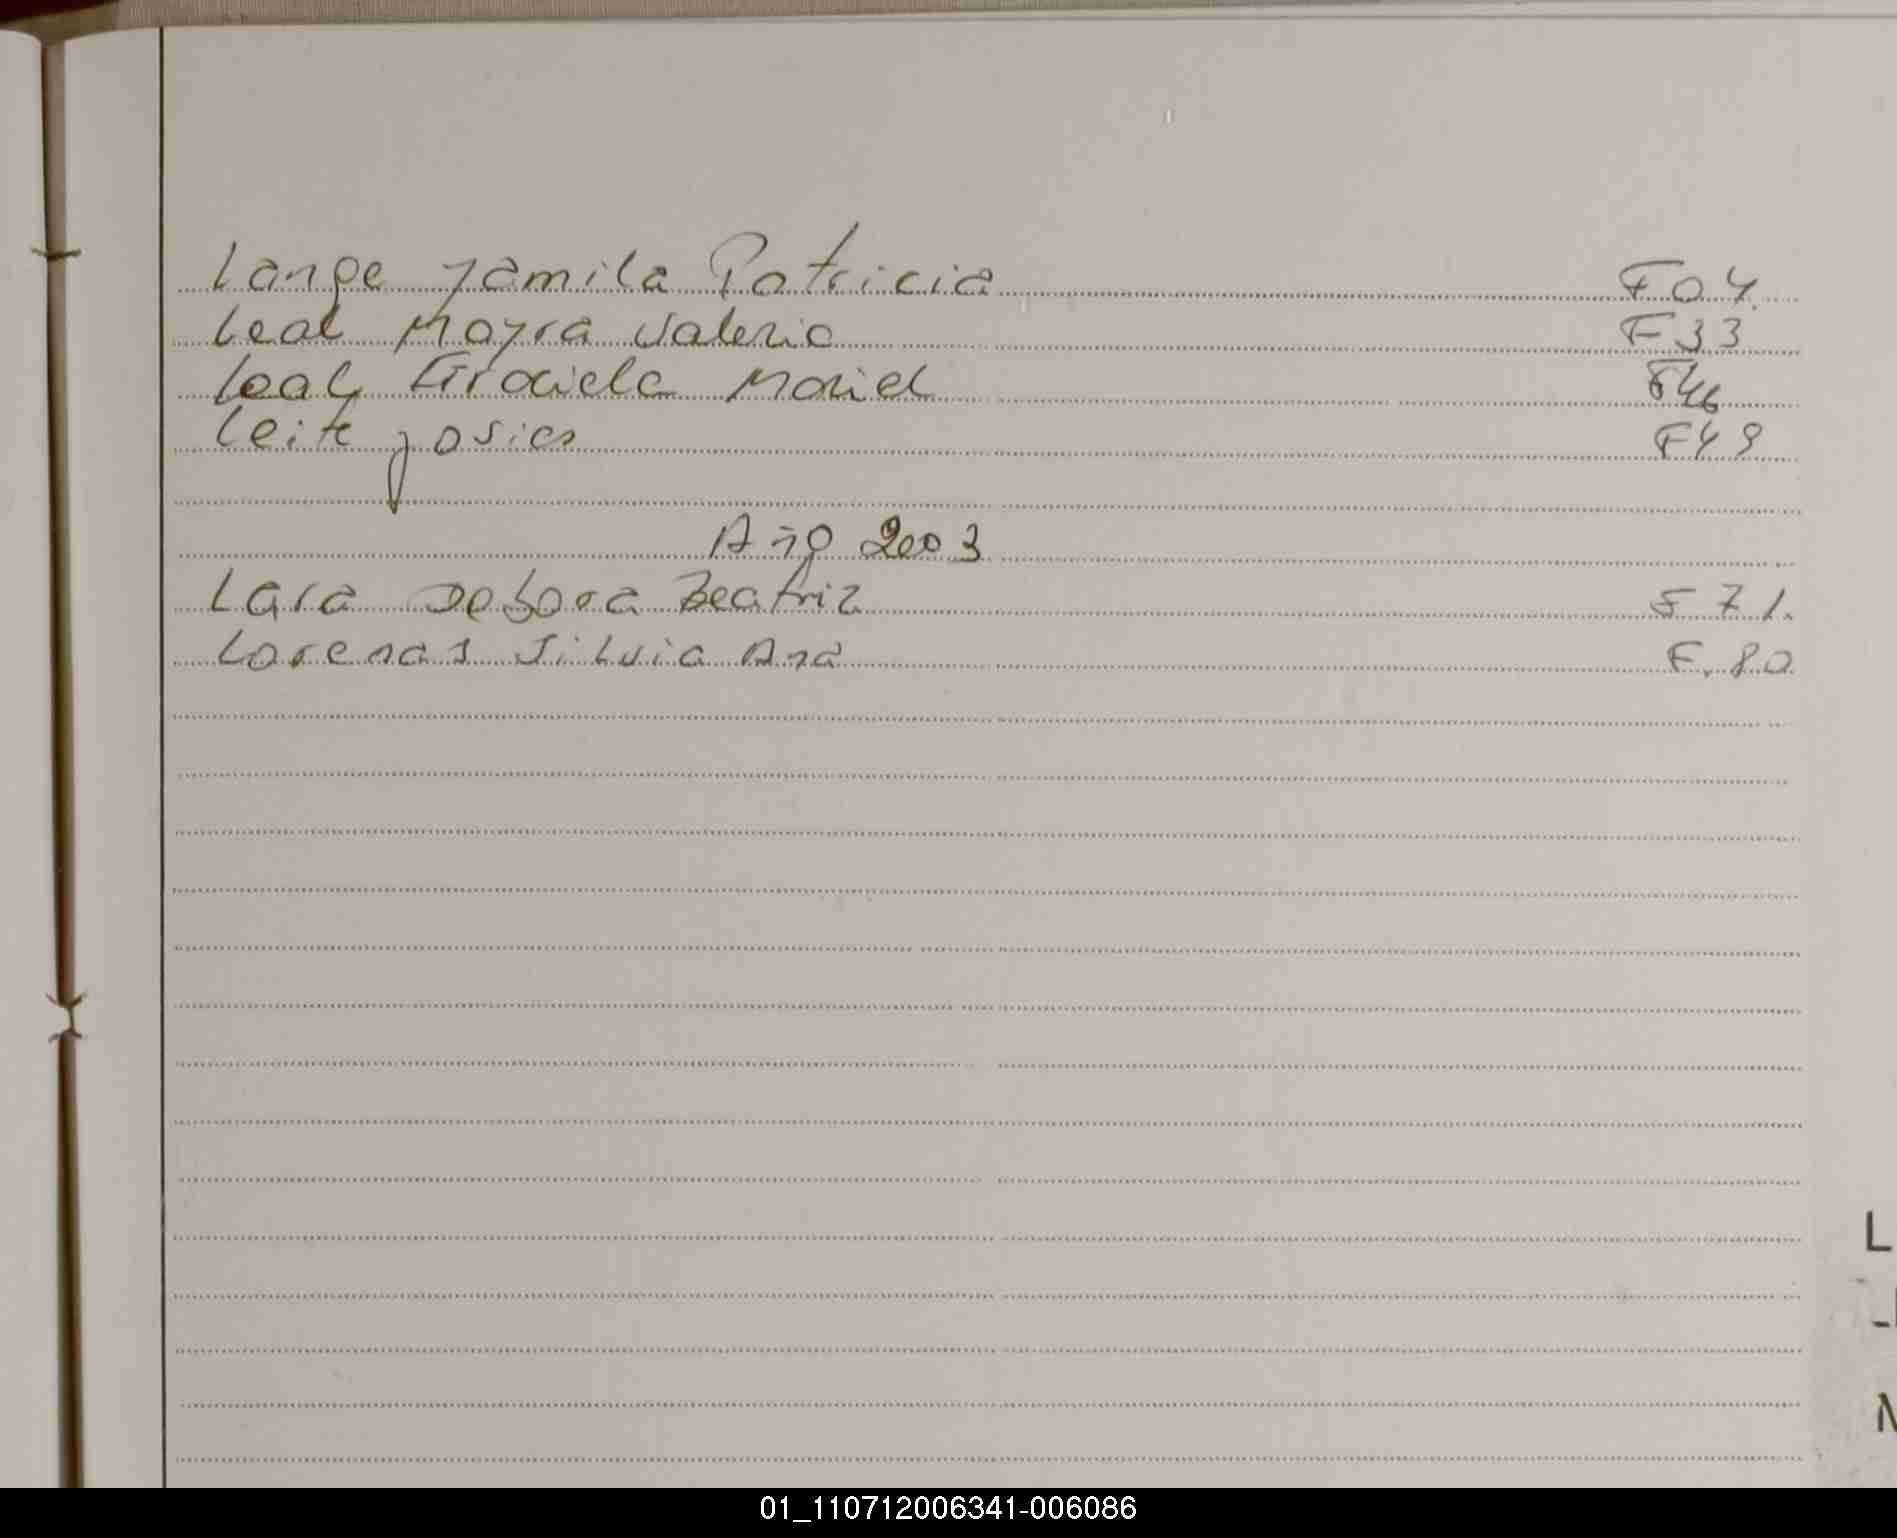 Lange Yamila Patricia F04
Leal Mayra Valeria F33
Leal Graciela Mariel F46
Leite Josias F49
Año 2003
Lara Debora Beatriz F71.
Lorenas Silvia Ana F.80
L
01_110712006341-006086